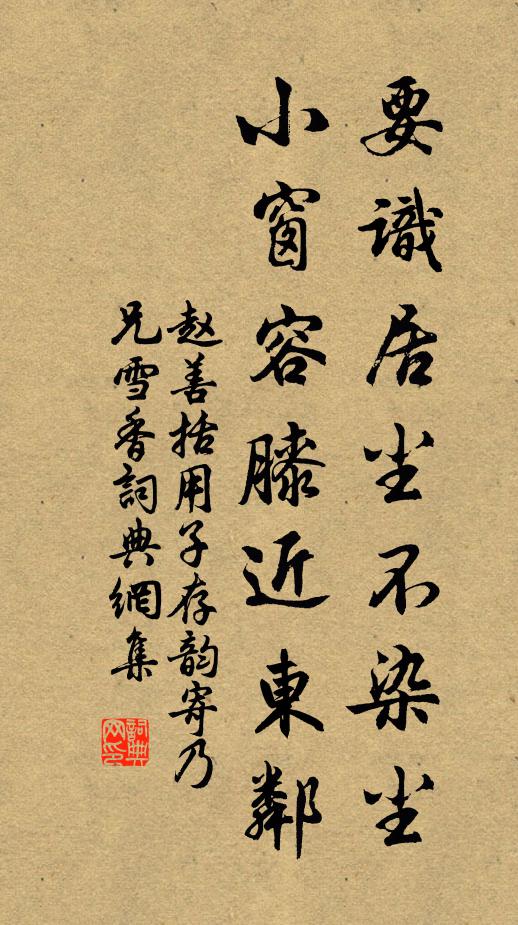 要識居尘不染尘
小窗容膝近東鄰
赵善括用子存韵寄乃
兄雪香詞典網集
詞典網印